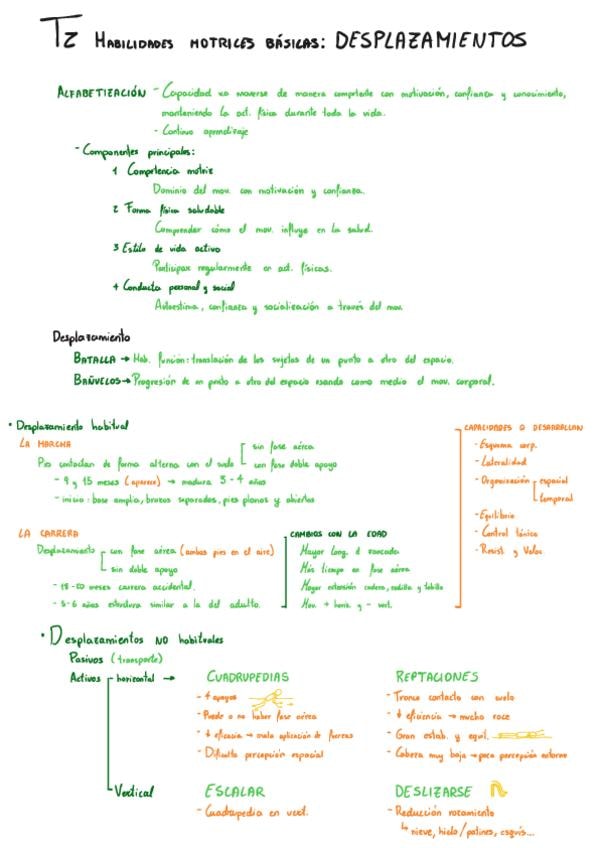 T2 HABILIDADES MOTRICES BÁSICAS: DESPLAZAMIENTOS
ALFABETIZACIÓN - Capacidad xa moverse de manera competente con motivación, confianza y conocimiento,
manteniendo la act. física durante toda la vida.
- Continuo aprendizaje
- Componentes principales:
1 Competencia motriz
Dominio del mov. con motivación y confianza.
2 Forma física saludable
Comprender cómo el mov. influye en la salud.
3 Estilo de vida activo
Participar regularmente en act. físicas.
4 Conducta personal y social
Autoestima, confianza y socialización a través del mov.
Desplazamiento
BATALLA → Hab. función: translación de los sujetos de un punto a otro del espacio.
BAÑUELOS → Progresión de un punto a otro del espacio usando como medio el mov. corporal.
• Desplazamiento habitual
LA MARCHA
Pies contactan de forma alterna con el suelo
sin fase aérea
con fase doble apoyo
- 9 y 15 meses (aparece) → madura 3-4 años
- inicio: base amplia, brazos separados, pies planos y abiertos
CAPACIDADES Q DESARROLLAN
- Esquema corp.
- Lateralidad
- Organización
espacial
temporal
- Equilibrio
- Control tónico
- Resist. y Veloc.
LA CARRERA
Desplazamiento
con fase aérea (ambos pies en el aire)
sin doble apoyo
- 18-20 meses carrera accidental.
- 5-6 años estructura similar a la del adulto.
CAMBIOS CON LA EDAD
Mayor long. d zancada
Más tiempo en fase aérea
Mayor extensión cadera, rodilla y tobillo
Mov. + horiz. y - vert.
• Desplazamientos NO habituales
Pasivos (transporte)
Activos
horizontal →
CUADRUPEDIAS
- 4 apoyos
- Puede o no haber fase aérea
- ↓ eficacia → mala aplicación de fuerzas
- Dificulta percepción espacial
REPTACIONES
- Tronco contacto con suelo
- ↓ eficiencia → mucho roce
- Gran estab. y equil.
- Cabeza muy baja → poca percepción entorno
Vertical
ESCALAR
- Cuadrupedia en vert.
DESLIZARSE
- Reducción rozamiento
↳ nieve, hielo/patines, esquís...